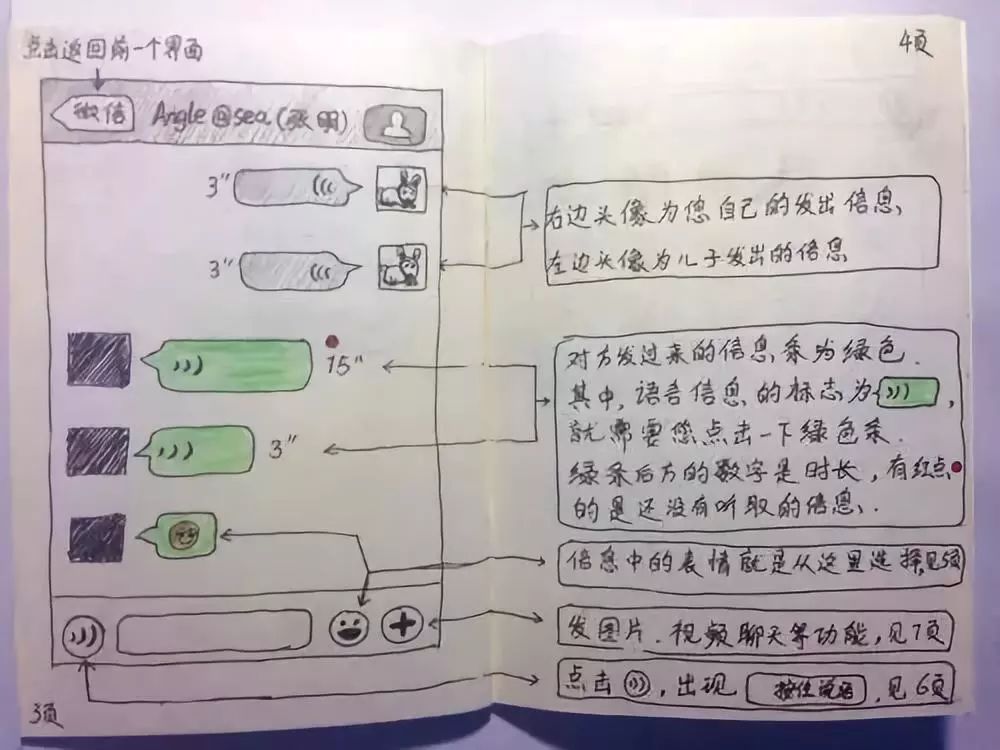 点击返回前一个界面
微信
Angle@sea.(张明)
3"
3"
15"
3"
3页
4页
右边头像为您自己的发出信息、
左边头像为儿子发出的信息
对方发过来的信息条为绿色.
其中,语音信息的标志为 ,
就需要您点击一下绿色条.
绿条后方的数字是时长,有红点
的是还没有听取的信息、.
信息中的表情就是从这里选择,见5页
发图片.视频聊天等功能,见7页
点击 ,出现 按住说话 ,见6页